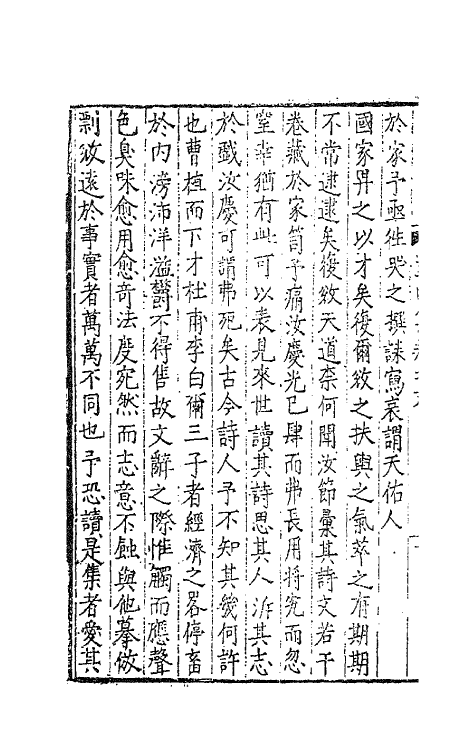 於家予亟徃哭之撰誄寫哀謂天佑人
國家畀之以才矣復爾㪣之扶輿之氣萃之有期期
不常逮逮矣復㪣天道柰何聞汝節彙其詩文若干
卷藏於家笥予痛汝慶光已肆而弗長用將究而忽
窒幸猶有此可以表見來世讀其詩思其人泝其志
於戲汝慶可謂弗死矣古今詩人予不知其幾何許
也曹植而下才杜甫李白爾三子者經濟之畧停畜
於內滂沛洋溢欝不得售故文辭之際惟觸而應聲
色臭味愈用愈奇法度宛然而志意不蝕與他摹倣
剽㪣遠於事實者萬萬不同也予恐讀是集者愛其